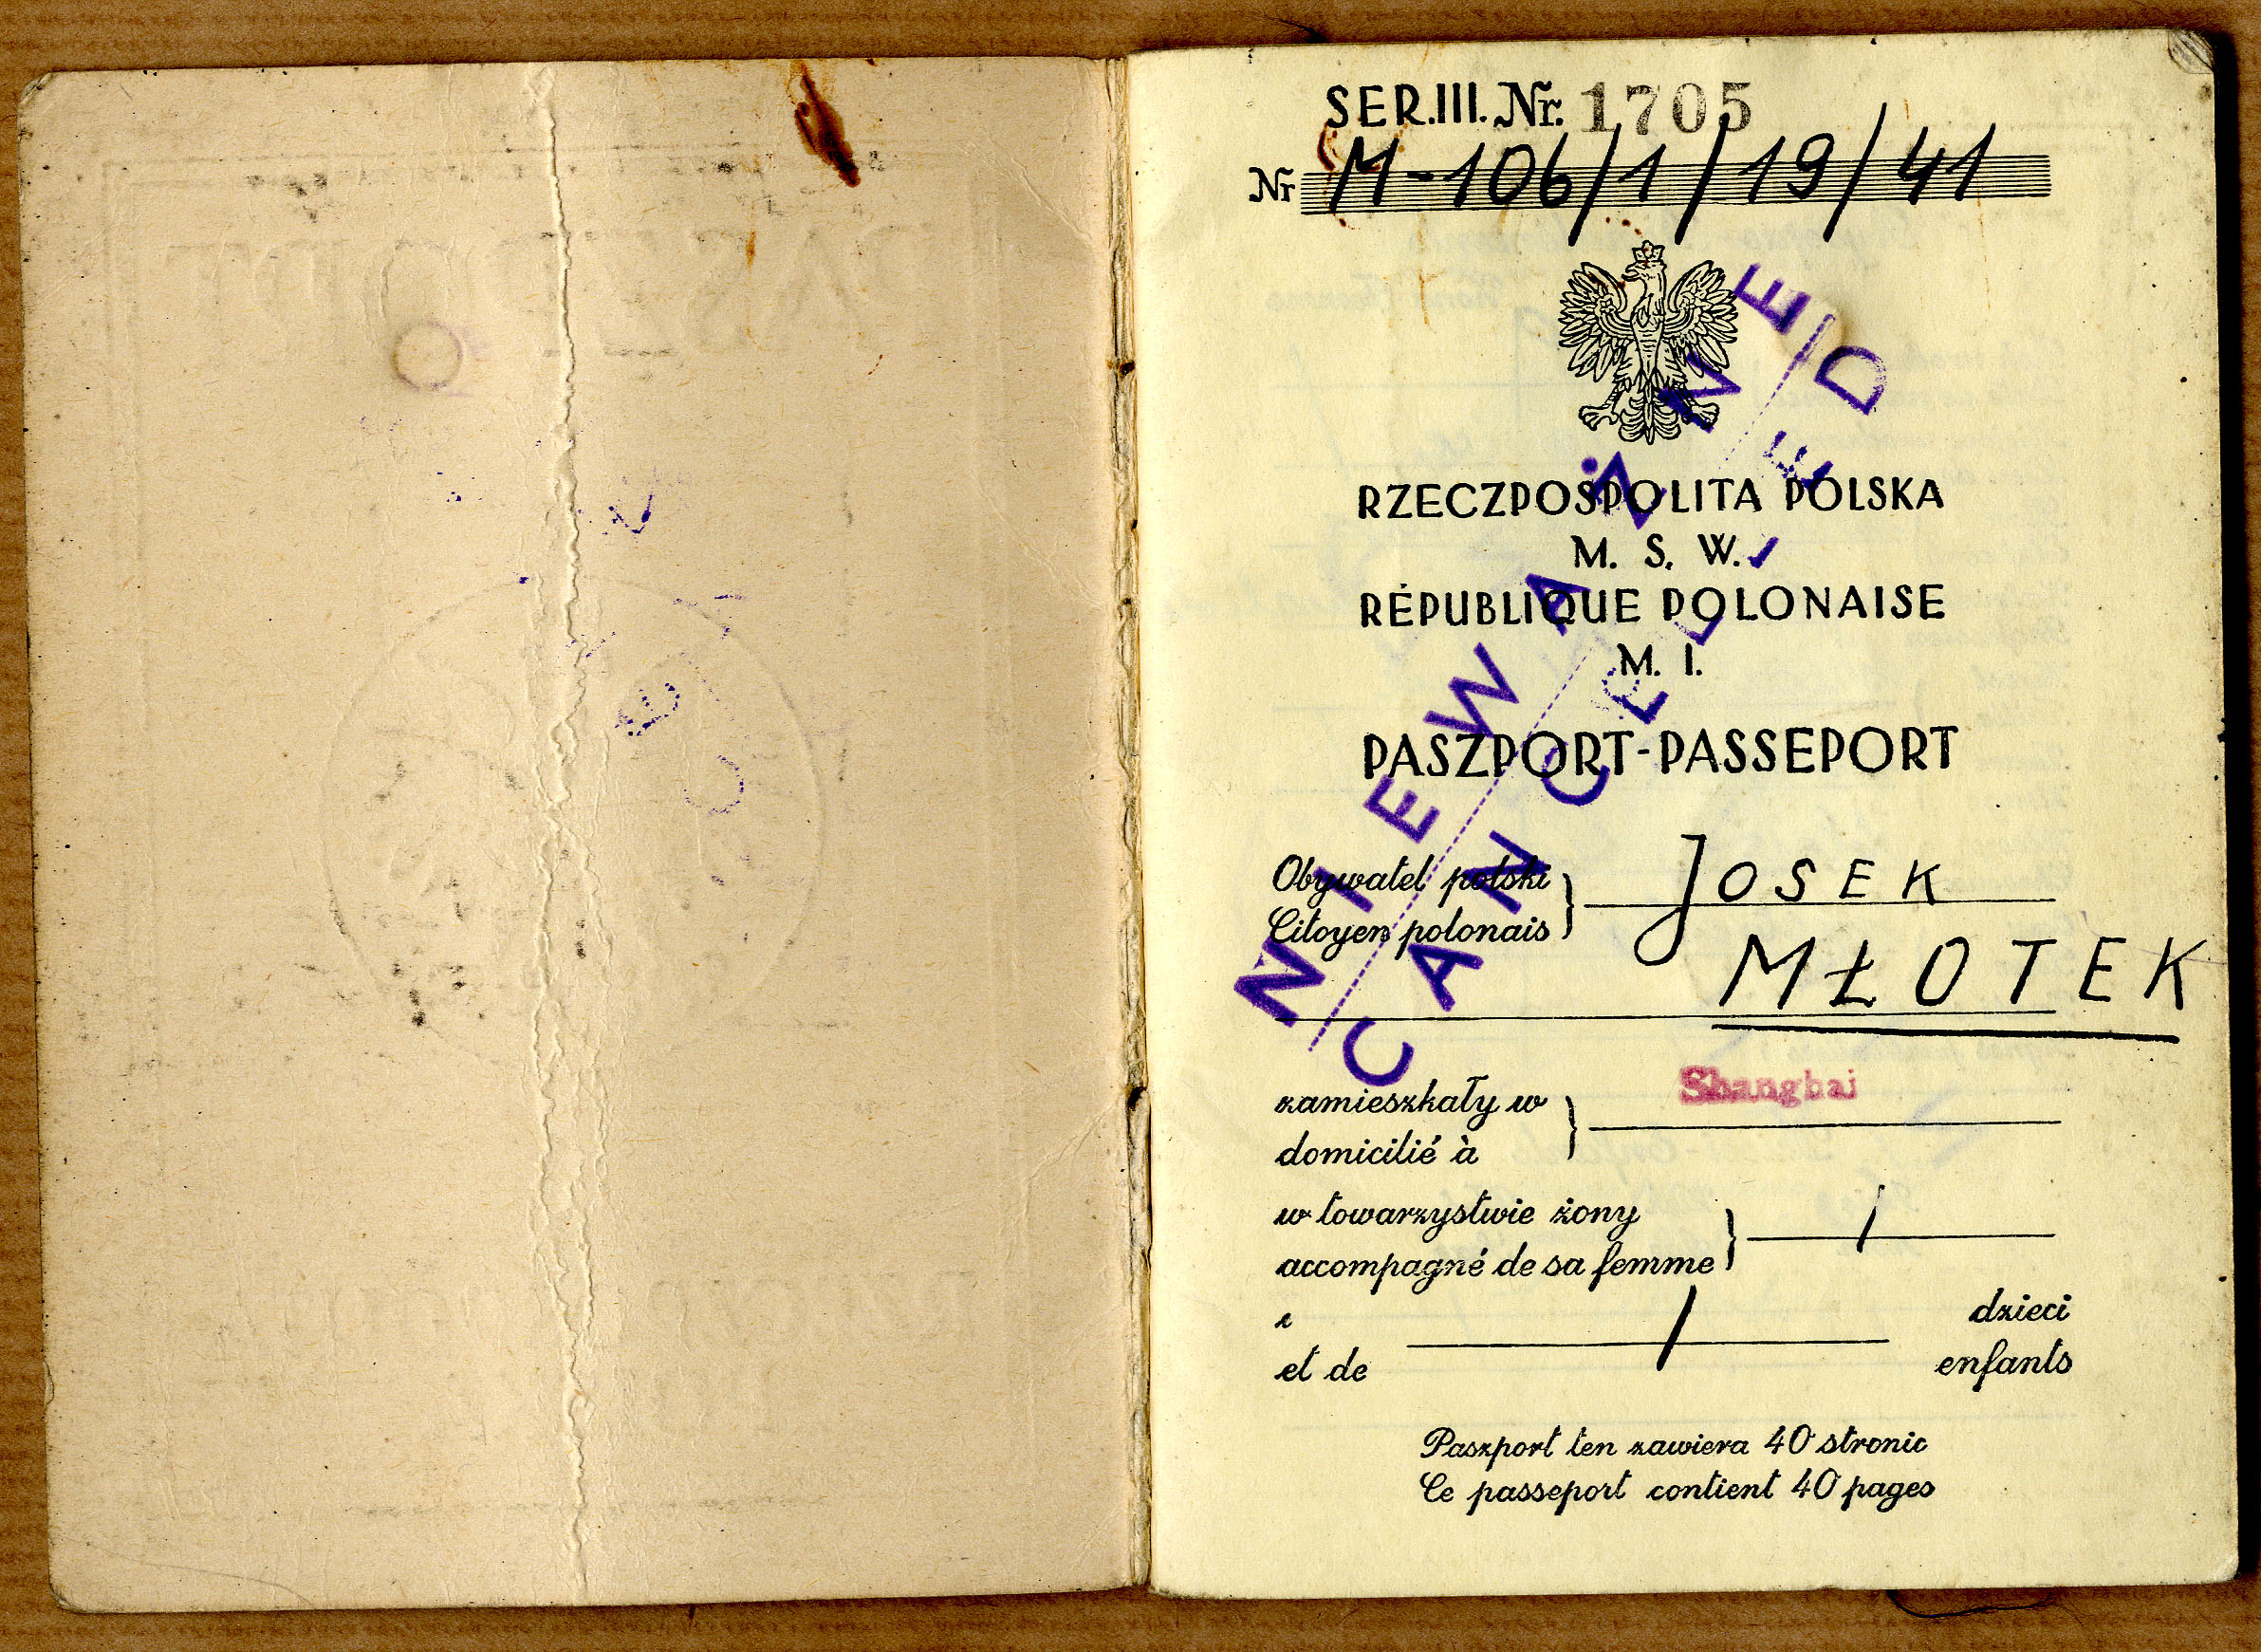 SER.III. Nr. 1705
Nr M-106/1/19/41
RZECZPOSPOLITA POLSKA
M. S. W.
RÉPUBLIQUE POLONAISE
M. I.
PASZPORT-PASSEPORT
NIEWAŻNE
CANCELLED
Obywatel polski
Citoyen polonais
JOSEK
MŁOTEK
zamieszkały w
domicilié à
Shanghai
w towarzystwie żony
accompagné de sa femme
/
i
dzieci
/
et de
enfants
Paszport ten zawiera 40 stronic
Ce passeport contient 40 pages